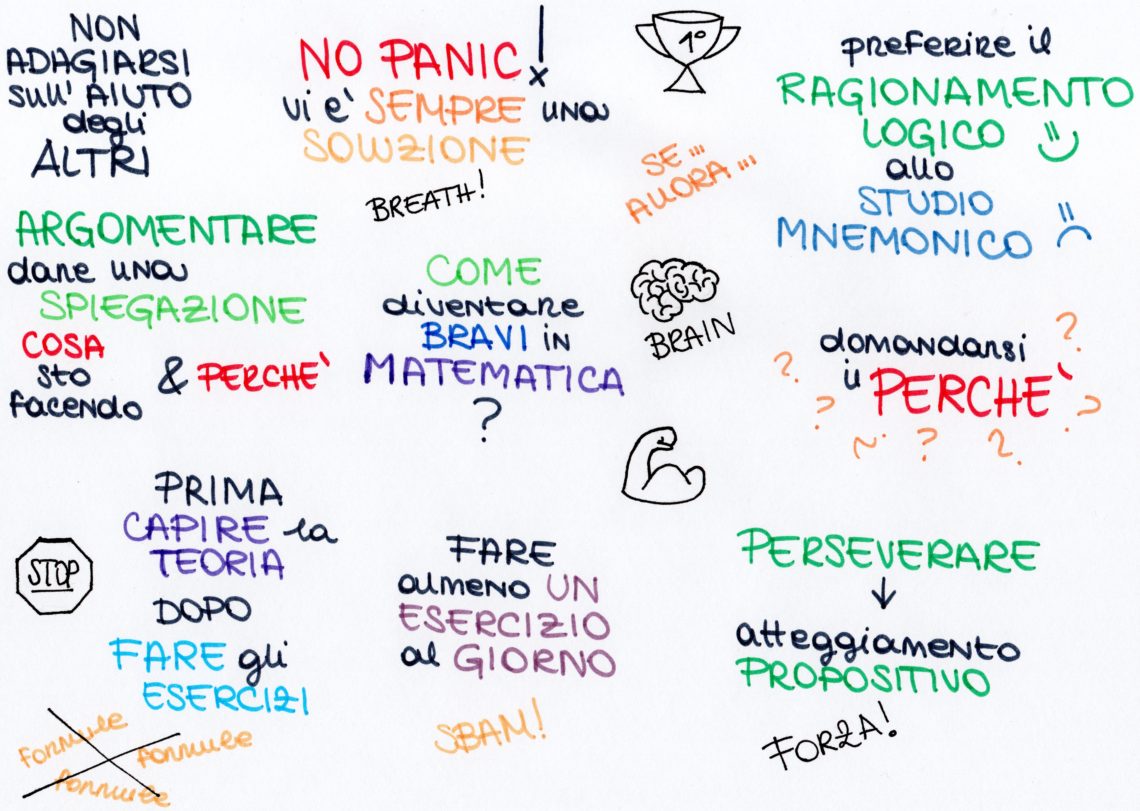 NON
ADAGIARSI
sull' AIUTO
degli
ALTRI
NO PANIC!
vi e' SEMPRE una
SOLUZIONE
BREATH!
1°
SE...
ALLORA...
preferire il
RAGIONAMENTO
LOGICO
allo
STUDIO
MNEMONICO
ARGOMENTARE
dare una
SPIEGAZIONE
COSA
sto
facendo
& PERCHE'
COME
diventare
BRAVI in
MATEMATICA
?
BRAIN
domandarsi
il PERCHE'
? ? ? ? ? ? ?
STOP
PRIMA
CAPIRE la
TEORIA
DOPO
FARE gli
ESERCIZI
formule
formule
formule
FARE
almeno UN
ESERCIZIO
al GIORNO
SBAM!
PERSEVERARE
↓
atteggiamento
PROPOSITIVO
FORZA!